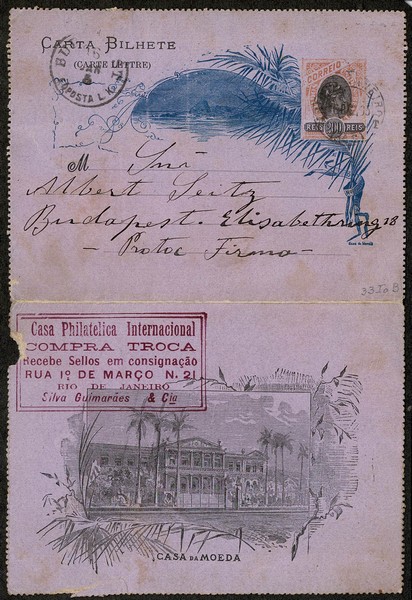 CARTA BILHETE
(CARTE LETTRE)
CORREIO
REIS 200 REIS
M
Albert Seitz
Budapest. Elisabethring 18
Casa da Moeda
33 Ia B
Casa Philatelica Internacional
COMPRA TROCA
Recebe Sellos em consignação
RUA 1º DE MARÇO N. 21
RIO DE JANEIRO
Silva Guimarães & Cia
CASA DA MOEDA